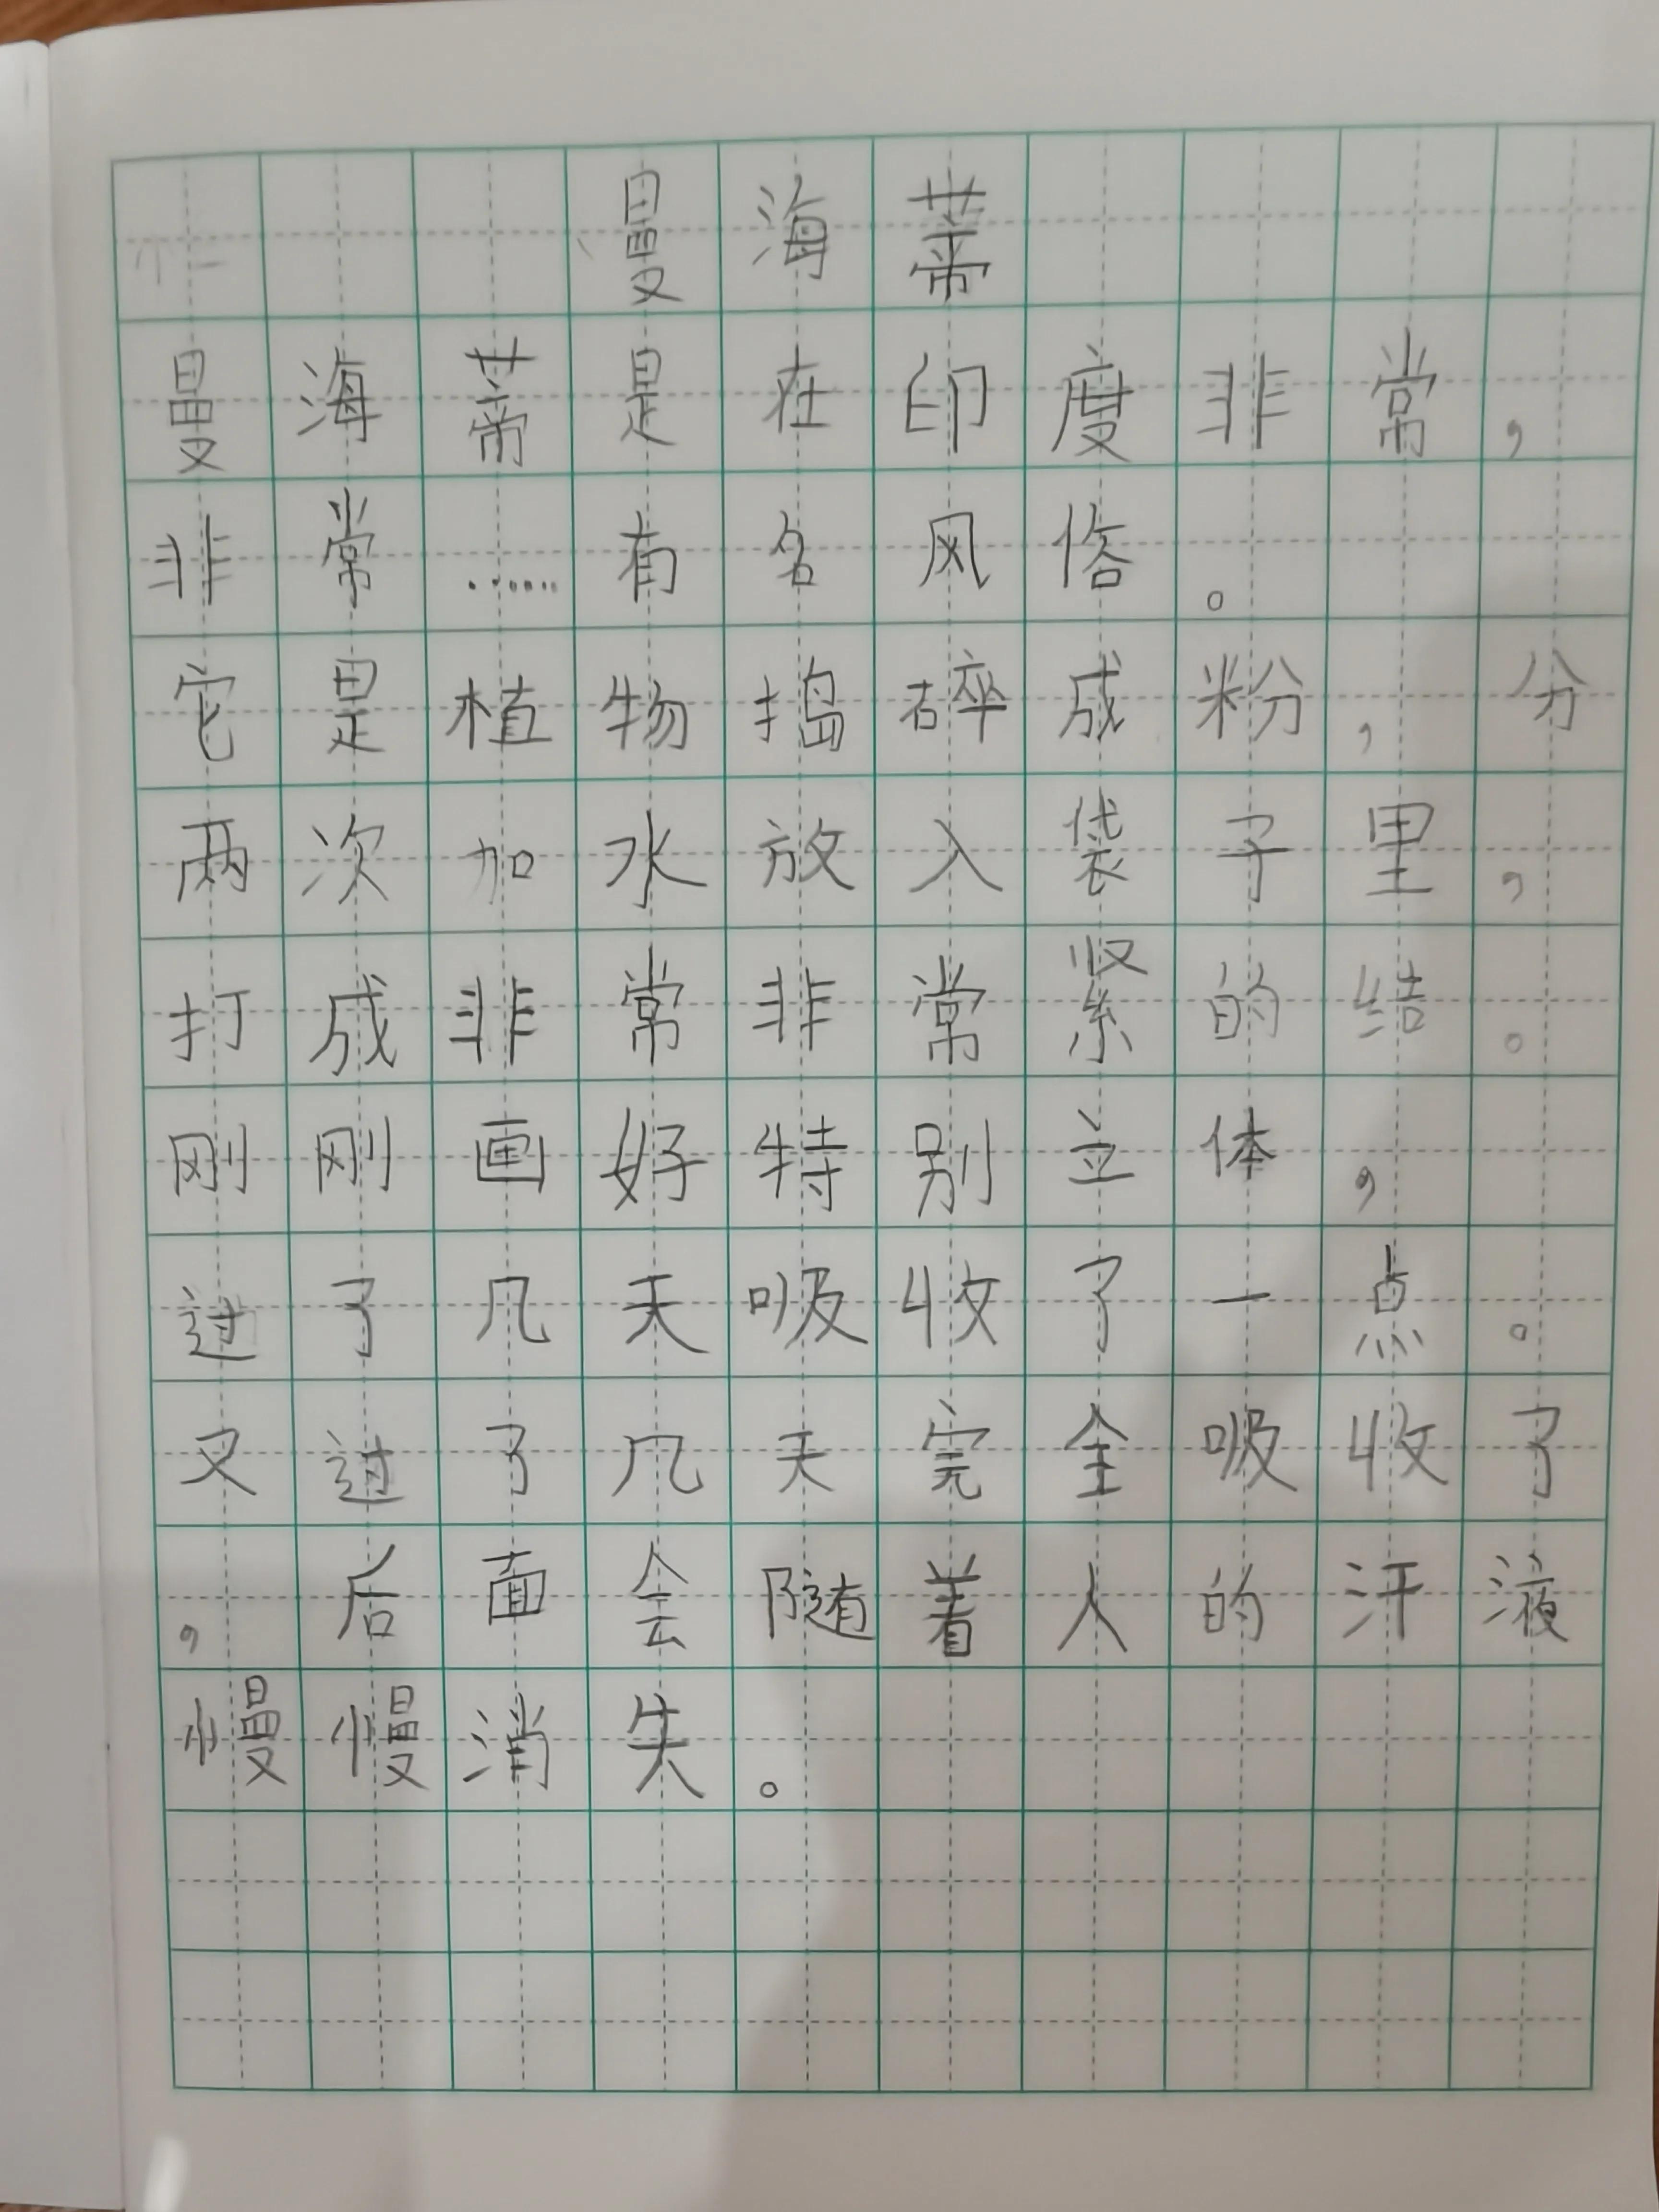 曼海蒂
曼海蒂是在印度非常，
非常……有名风俗。
它是植物捣碎成粉，分
两次加水放入袋子里，
打成非常非常紧的结。
刚刚画好特别立体，
过了几天吸收了一点。
又过了几天完全吸收了
，后面会随着人的汗液
慢慢消失。